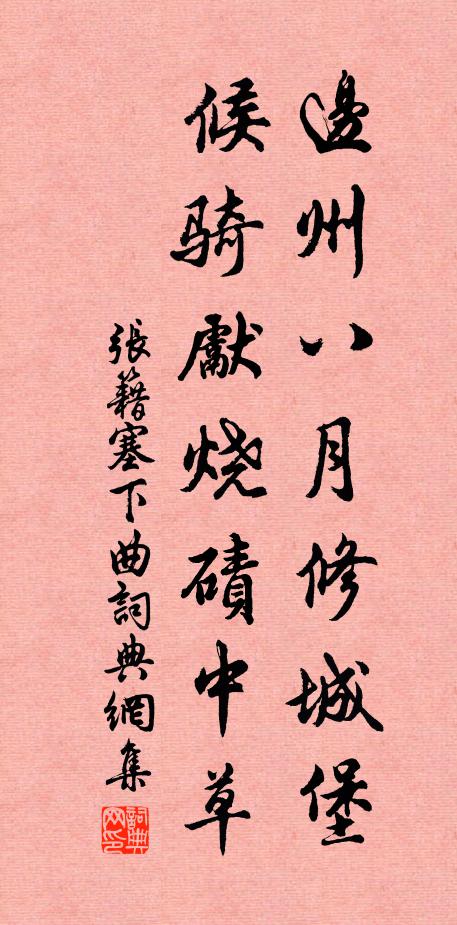 邊州八月修城堡
候騎獻烧磧中草
張籍塞下曲詞典網集
詞典网印